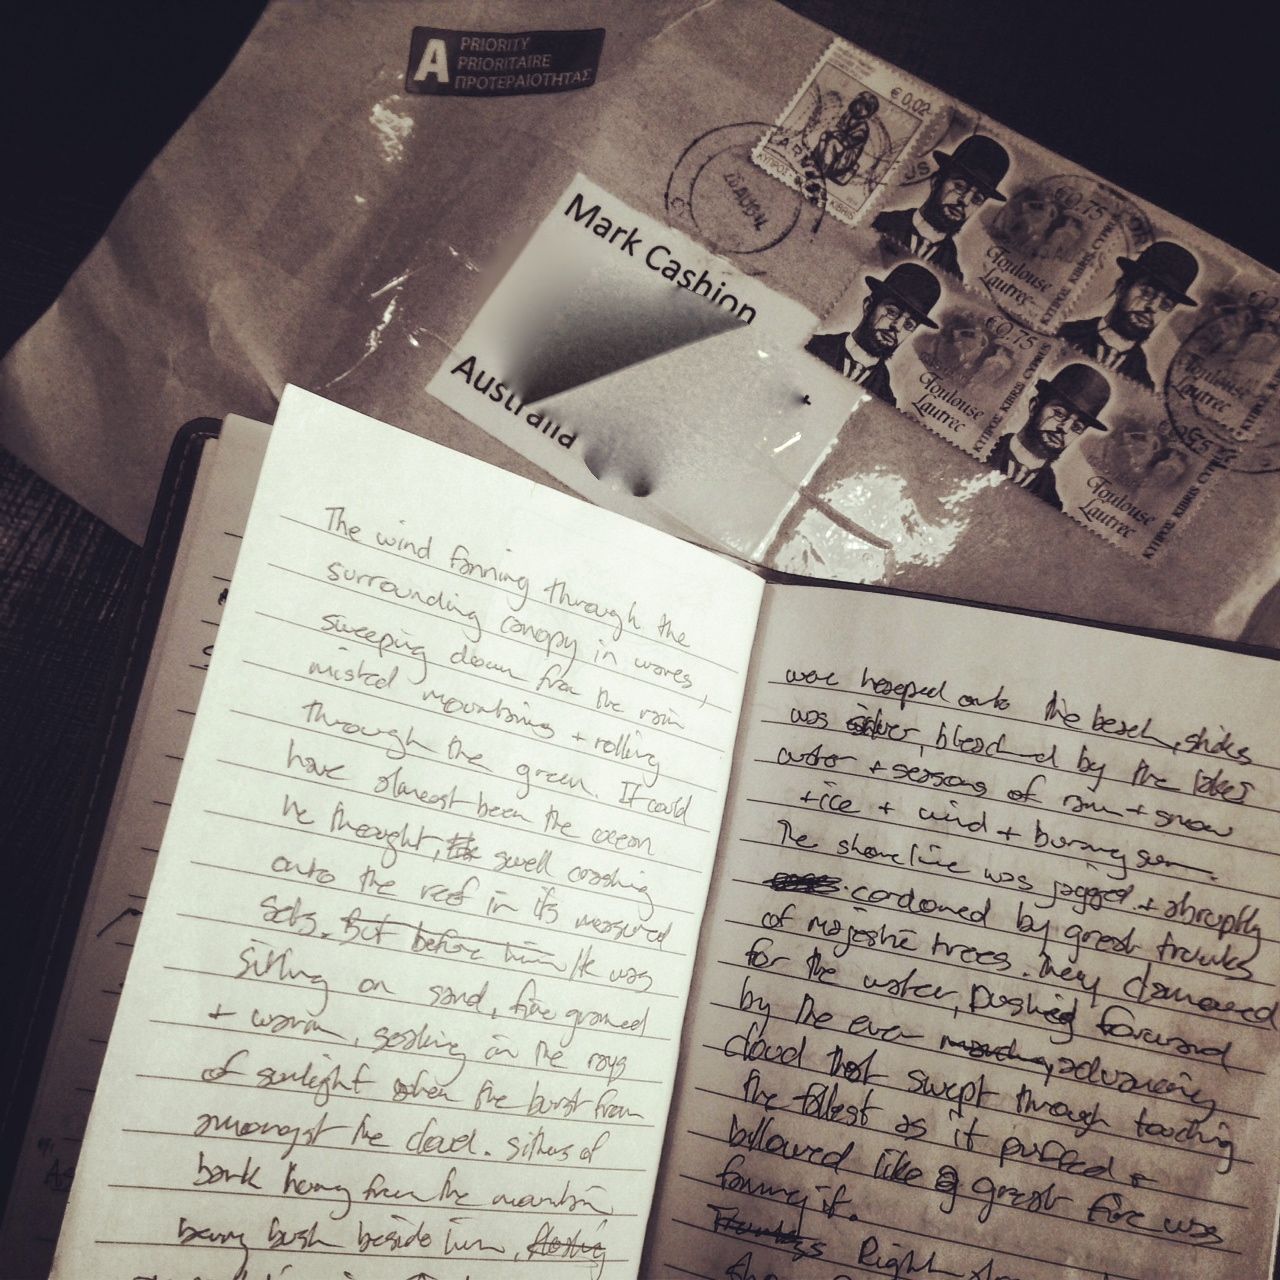 A PRIORITY
PRIORITAIRE
ΠΡΟΤΕΡΑΙΟΤΗΤΑΣ
€0,02
ΚΥΠΡΟΣ KIBRIS
20 AUG
Mark Cashion
Australia
€0,75
Toulouse
Lautrec
ΚΥΠΡΟΣ KIBRIS CYPRUS
Toulouse
Lautrec
€0,75
Toulouse
Lautrec
ΚΥΠΡΟΣ KIBRIS CYPRUS
Toulouse
Lautrec
ΚΥΠΡΟΣ KIBRIS CYPRUS
The wind fanning through the
surrounding canopy in waves,
sweeping down from the rain
misted mountains + rolling
through the green. It could
have almost been the ocean
he thought, swell crashing
onto the reef in its measured
sets. But before him He was
sitting on sand, fine grained
+ warm, soaking in the rays
of sunlight when the burst from
amongst the cloud. of
bark from the mountain
bush beside him,
were heaped onto the beach, sticks
was silver, bleached by the lakes
water + seasons of rain + snow
+ ice + wind + burning sun.
The shoreline was jagged + abruptly
cordoned by great trunks
of majestic trees. They clamored
for the water, pushing forward
by the ever advancing
cloud that swept through touching
the tallest as it puffed +
billowed like a great fire was
fanning it.
Right